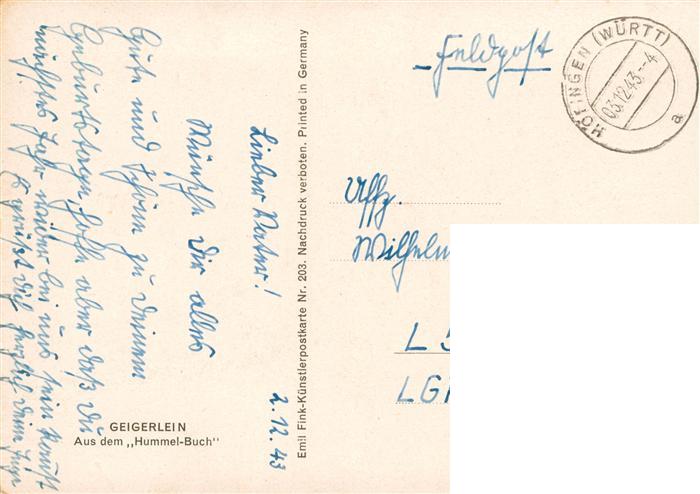 2.12.43
Lieber Vater!
Wünsche Dir alles
Gute und Schöne zu Deinem
Geburtstage, hoffe aber daß Du
nächstes Jahr wieder bei uns sein kannst
Es grüßt Dich herzlich Deine Inge
GEIGERLEIN
Aus dem „Hummel-Buch"
Emil Fink-Künstlerpostkarte Nr. 203. Nachdruck verboten. Printed in Germany
Feldpost
HÖFINGEN (WÜRTT)
03.12.43.-4
a
Uffz.
Wilhelm
L 5
LG